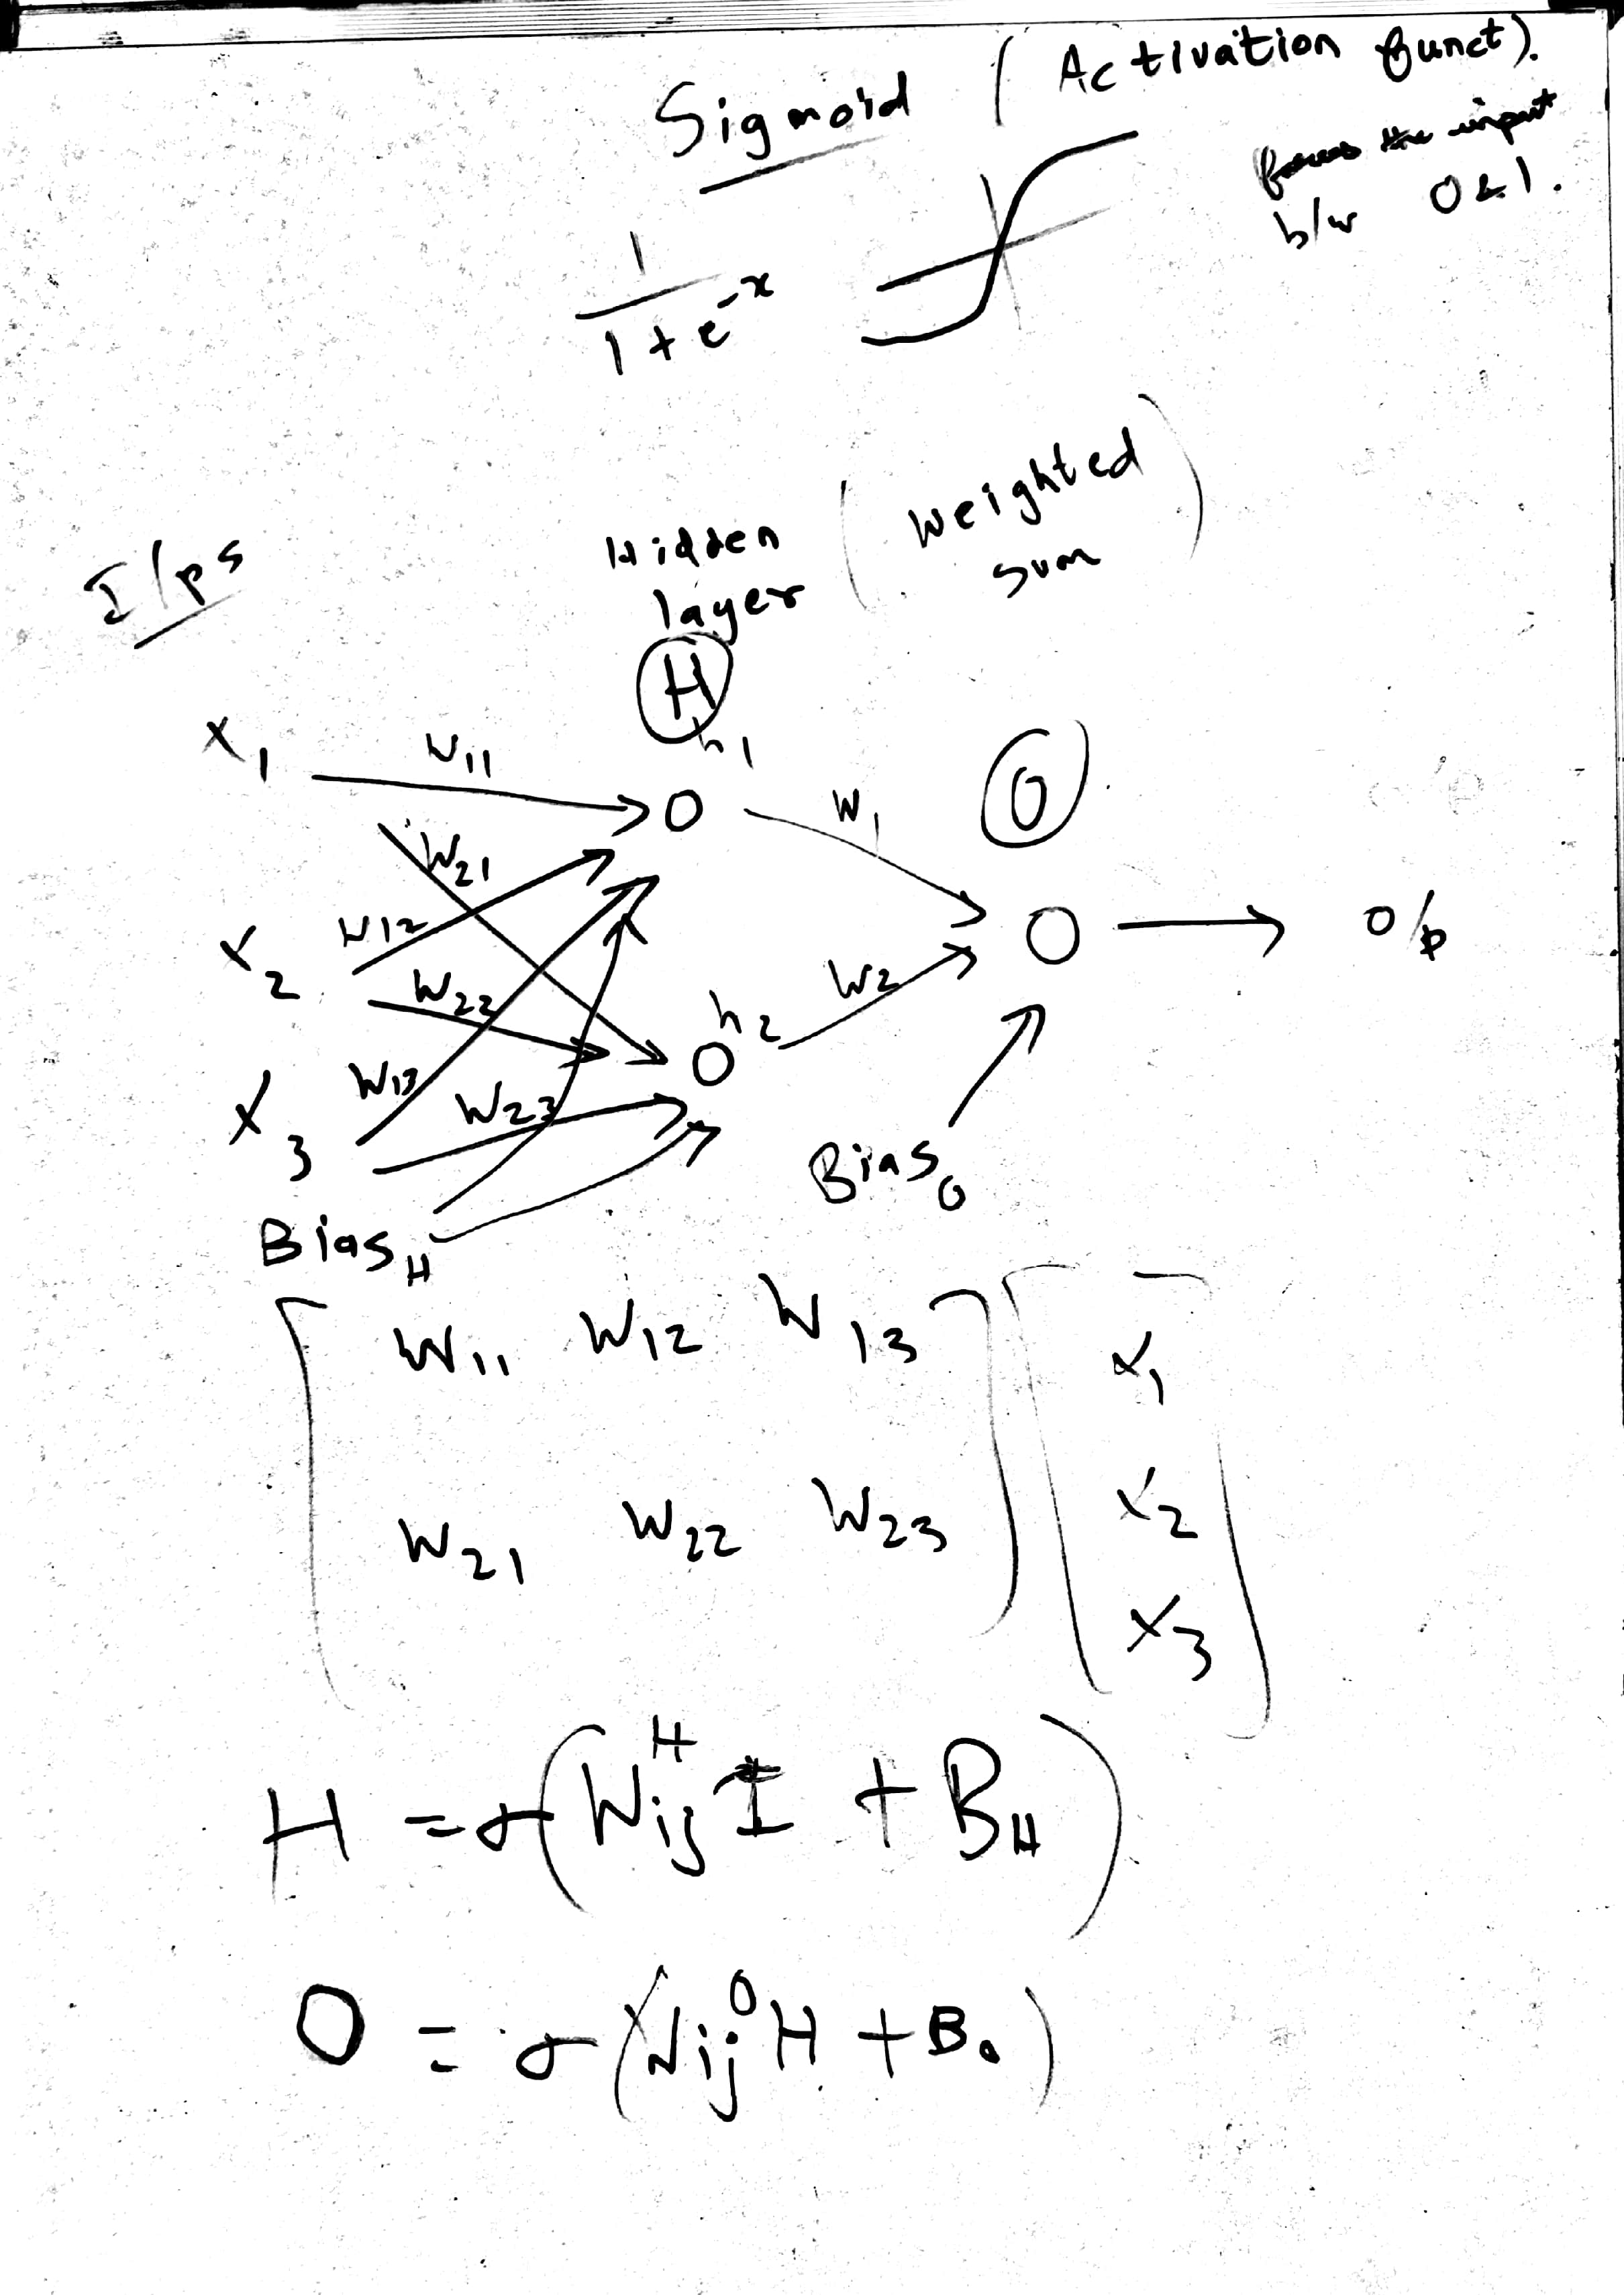 Sigmoid (Activation funct).
forces the input
b/w 0 & 1.
1
1 + e^-x
I/ps
Hidden layer (Weighted sum)
H
x1 w11 h1
w21 w1 O
x2 w12
w22 w2 o/p
h2
x3 w13 w23
Bias_H Bias_O
w11 w12 w13 x1
w21 w22 w23 x2
x3
H = σ(W_ij^H I + B_H)
O = σ(W_ij^O H + B_o)